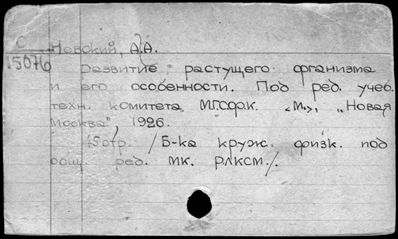 С
15076
Невский, А.А.
Развитие растущего организма
и его особенности. Под ред. учеб.
техн. комитета МГСФК. <М.>, „Новая
Москва" 1926.
45стр. /Б-ка круж. физк. под
общ. ред. МК. РЛКСМ./.